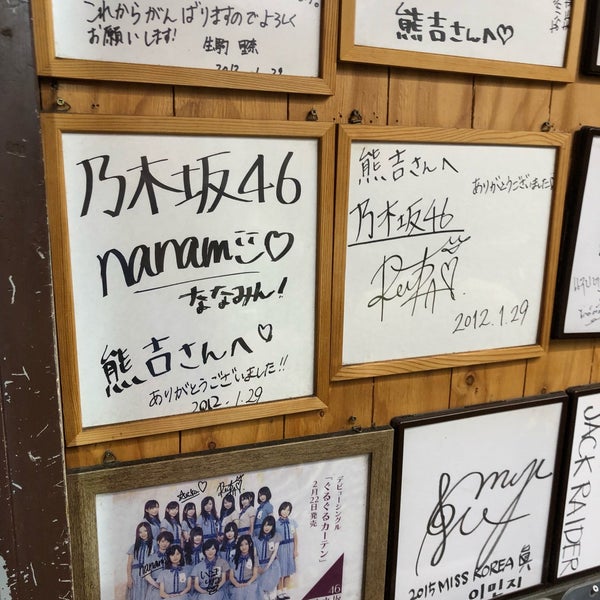 これからがんばりますのでよろしく
お願いします!
2012.1.29
熊吉さんへ♡
乃木坂46
nanami♡
ななみん!
熊吉さんへ♡
ありがとうございました!!
2012.1.29
熊吉さんへ
ありがとうございました
乃木坂46
2012.1.29
デビューシングル
「ぐるぐるカーテン」
2月22日発売
46
2015 MISS KOREA 眞
이민지
JACK RAIDER